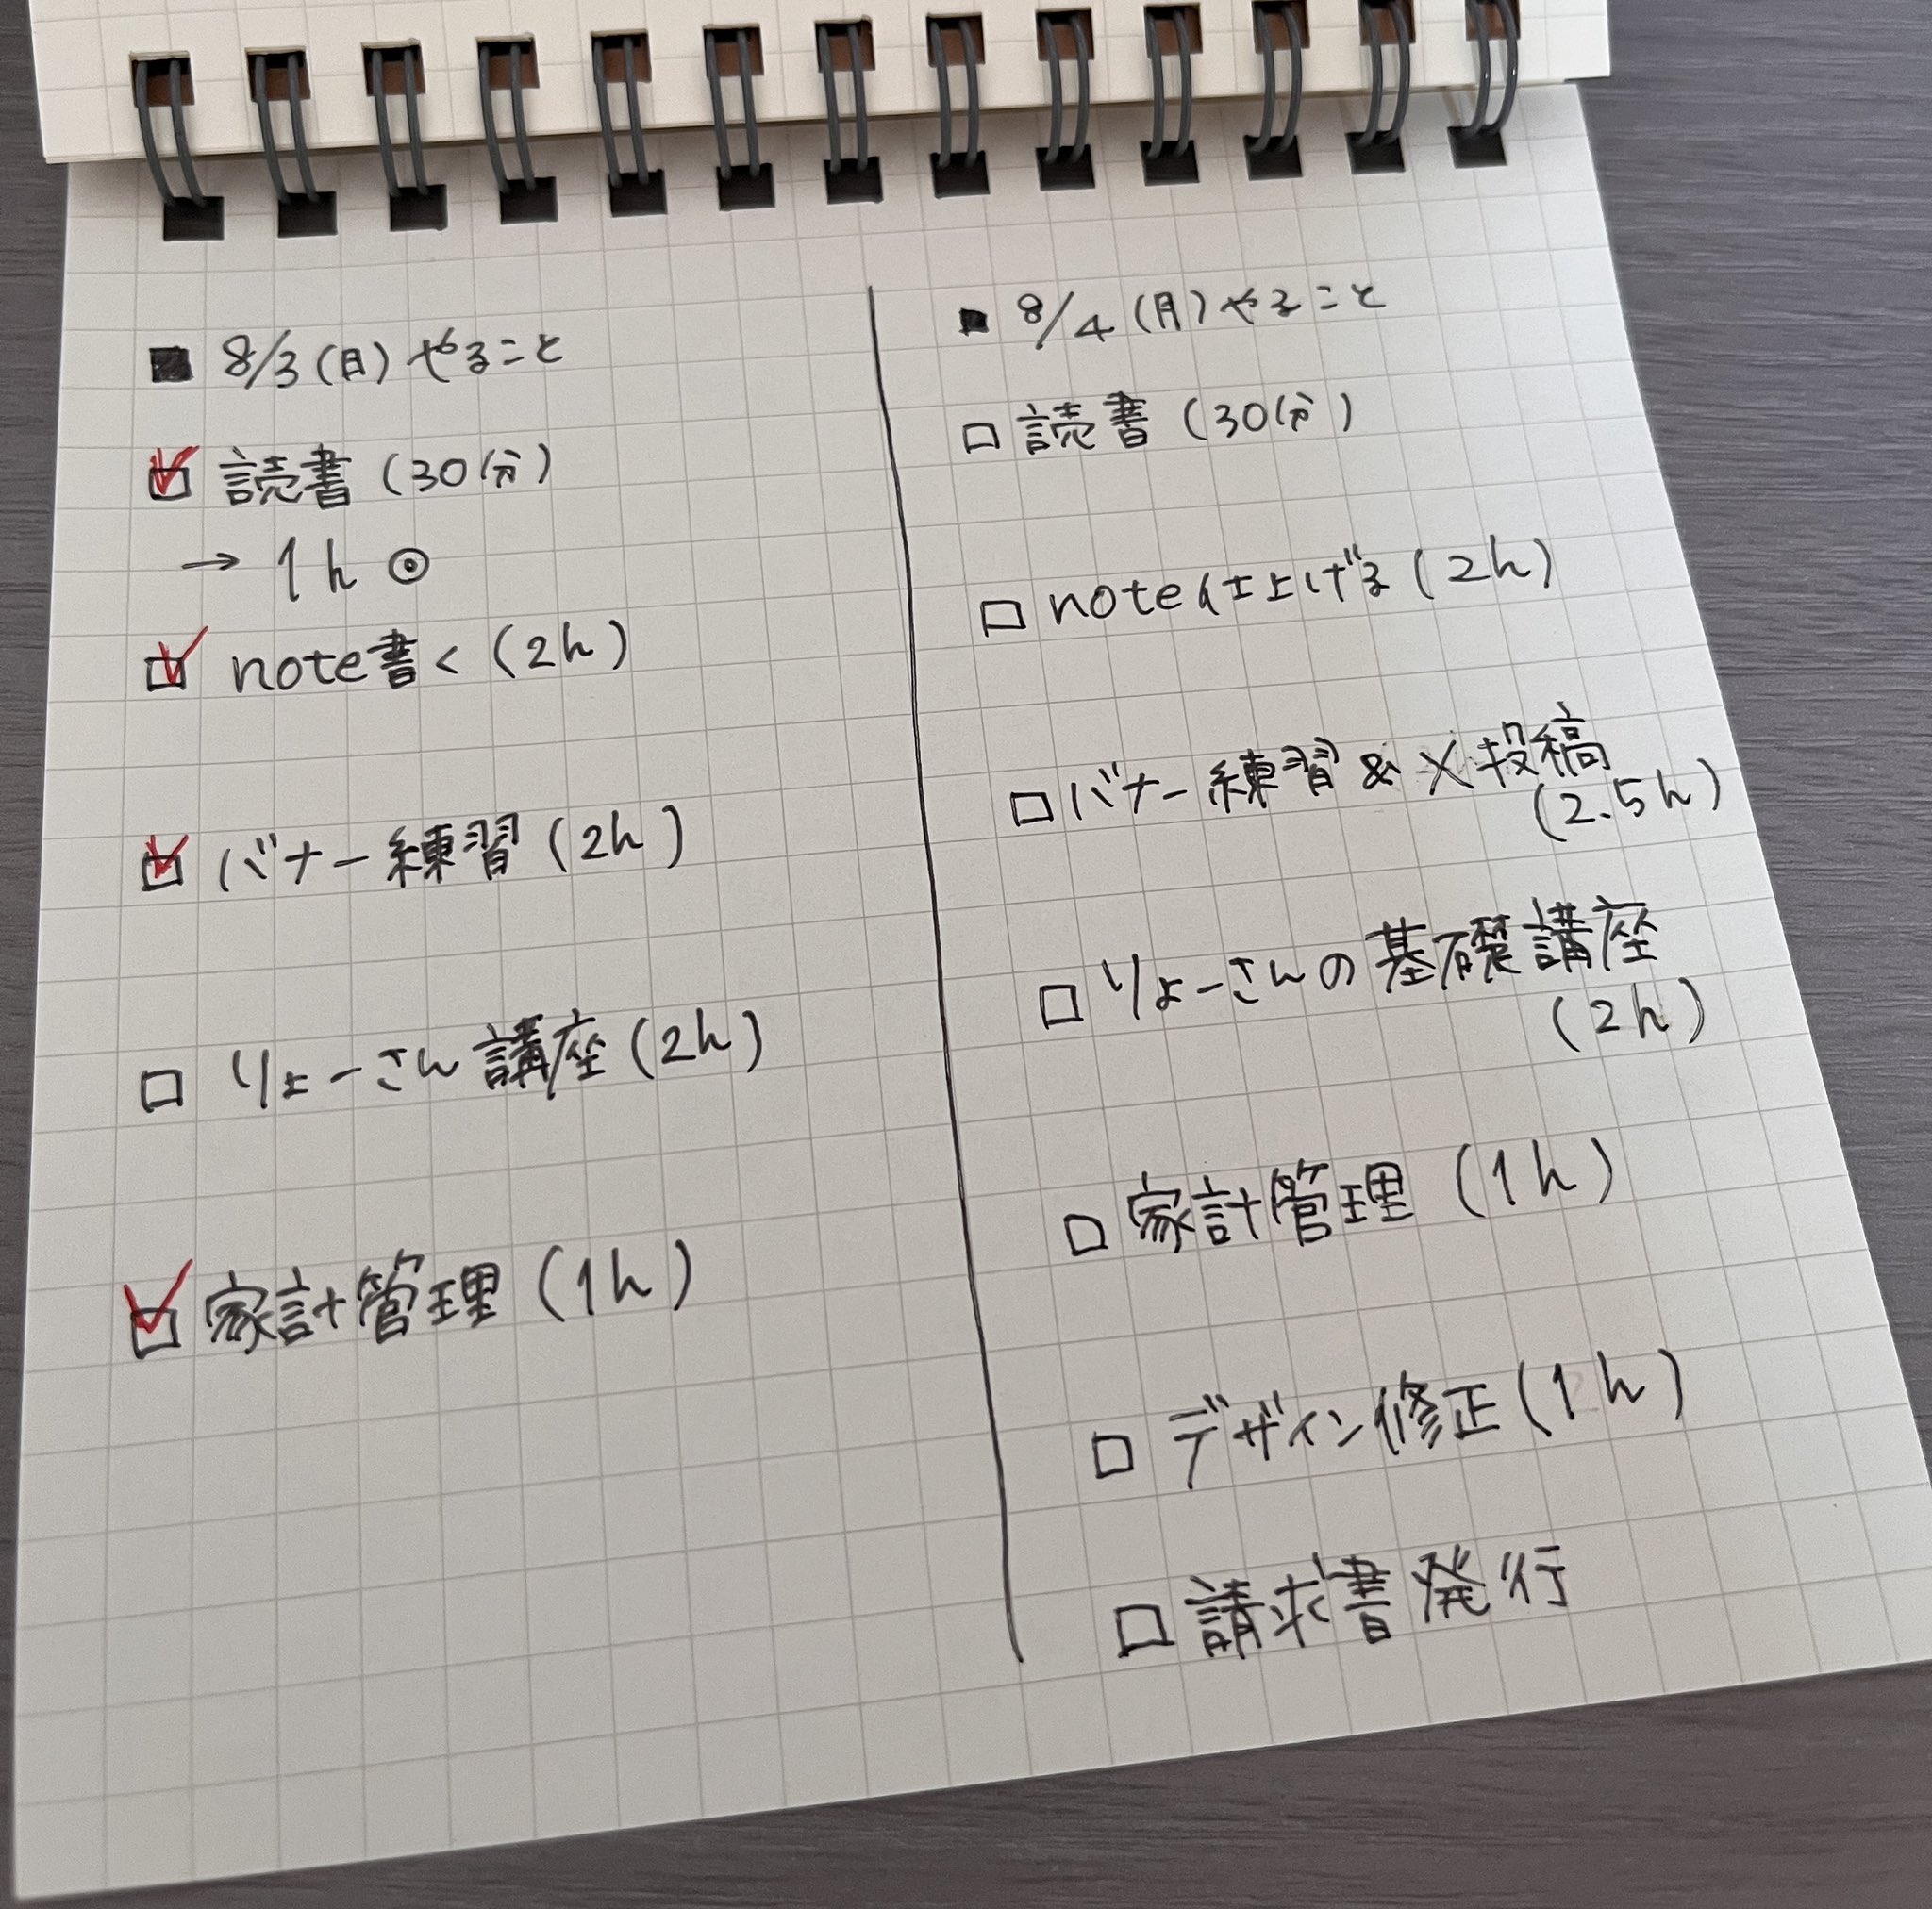 ■ 8/3(日)やること
☑ 読書(30分)
→ 1h ◎
☑ note書く(2h)
☑ バナー練習(2h)
□ りょーさん講座(2h)
☑ 家計管理(1h)
■ 8/4(月)やること
□ 読書(30分)
□ note仕上げる(2h)
□ バナー練習&X投稿
(2.5h)
□ りょーさんの基礎講座
(2h)
□ 家計管理(1h)
□ デザイン修正(1h)
□ 請求書発行